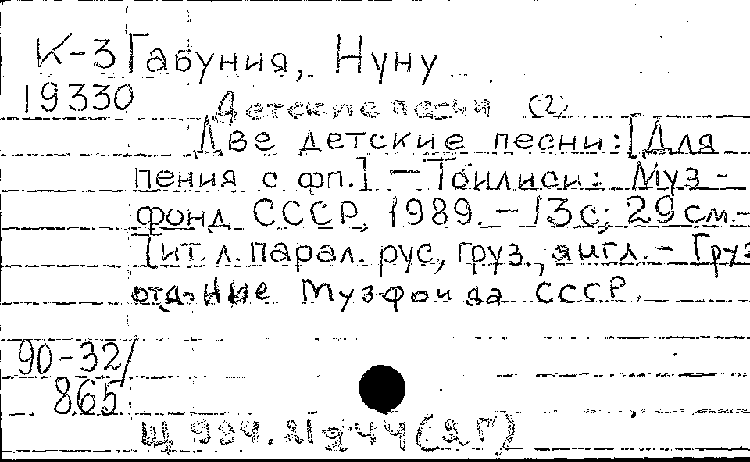 К-3 Габуния, Нуну
19330
Детские песни (2)
Две детские песни: [Для
пения с фп.] — Тбилиси: Муз-
фонд СССР, 1989. — 13 с; 29 см. —
Тит. л. парал. рус, груз., англ. — Груз.
отд-ние Музфонда СССР.
90-32/
865